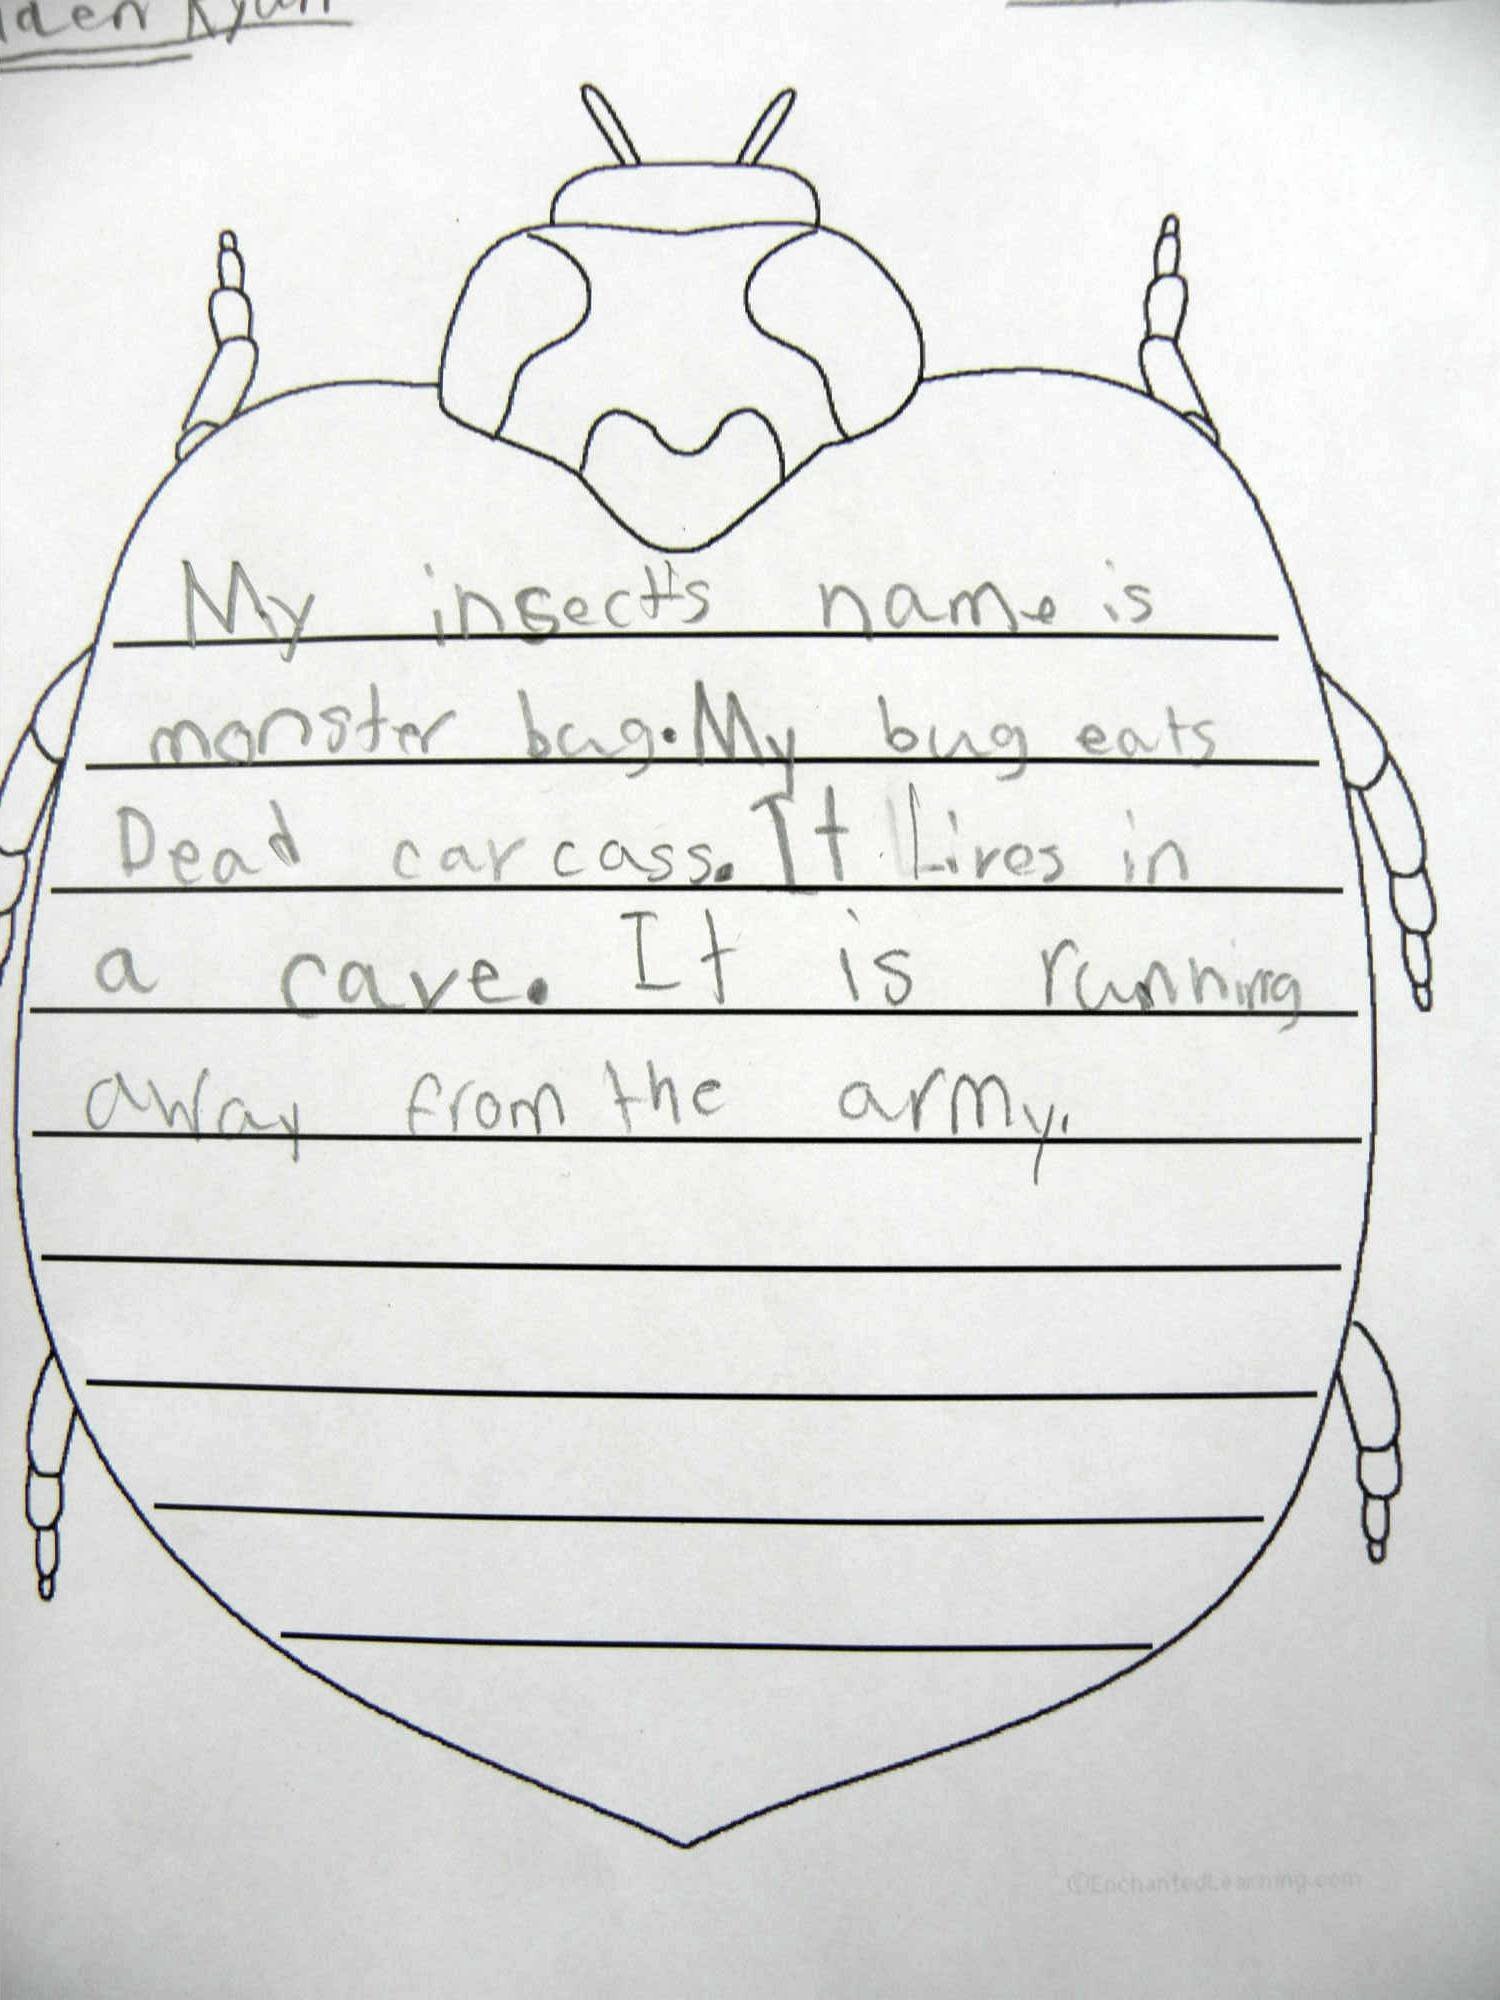 Ryan
My insect's name is
monster bug. My bug eats
Dead carcass. It Lives in
a cave. It is running
away from the army.
©EnchantedLearning.com